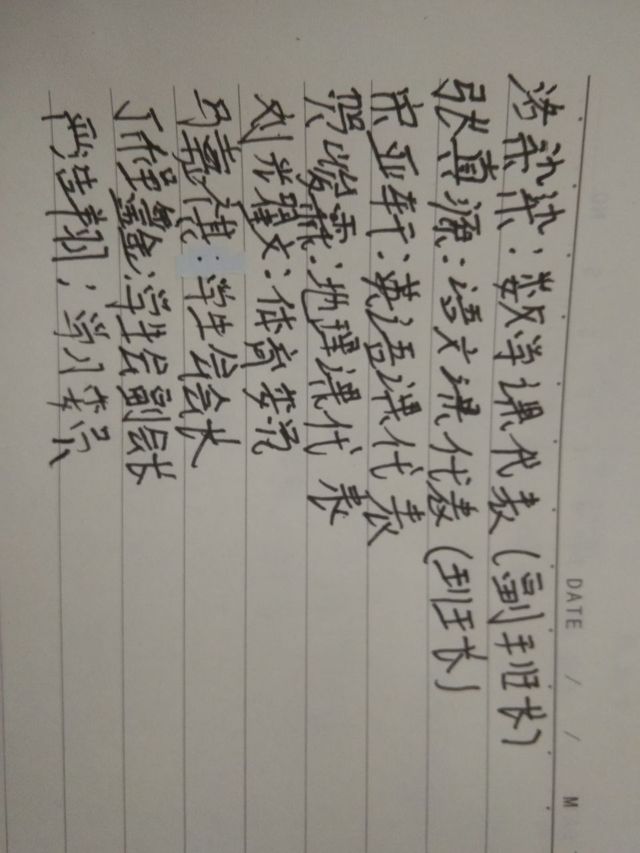 DATE / / M
洛染染：数学课代表（副班长）
张真源：语文课代表（班长）
宋亚轩：英语课代表
贺峻霖：地理课代表
刘耀文：体育委员
马嘉祺：学生会会长
丁程鑫：学生会副会长
严浩翔：学习委员